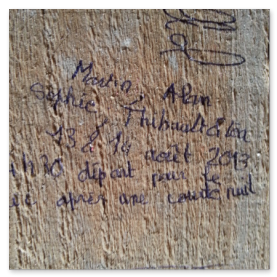 Martin, Alan
Sophie, Thibault Eilan
13 & 14 août 2013
départ pour le
après une courte nuit